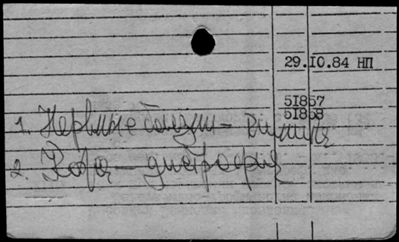 29.10.84 НП
51857
51858
1. Нервные болезни – химия
2. Кожа – дистрофия